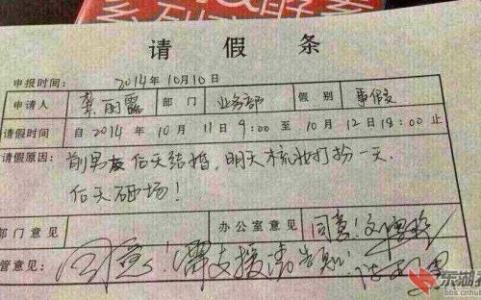 系列酵素
请 假 条
申报时间： 2014年10月10日
申请人 龚丽露 部 门 业务部 假 别 事假
请假时间 自2014年 10月 11日9:00至10月12日18:00止
请假原因： 前男友后天结婚，明天梳妆打扮一天，
后天砸场！
部门意见 办公室意见 同意！
管意见： 同意！需支援请告知！
东湖
bbs.cnhub